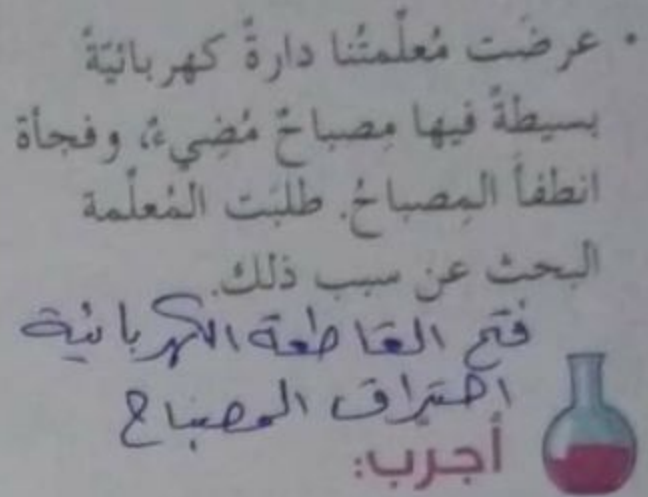 • عرضَت مُعلِّمتُنا دارةً كهربائيّةً
بسيطةً فيها مِصباحٌ مُضِيءٌ، وفجأة
انطفأ المِصباحُ. طلبَت المُعلِّمة
البحث عن سبب ذلك.
فتح القاطعة الكهربائية
احتراق المصباح
أجرب: